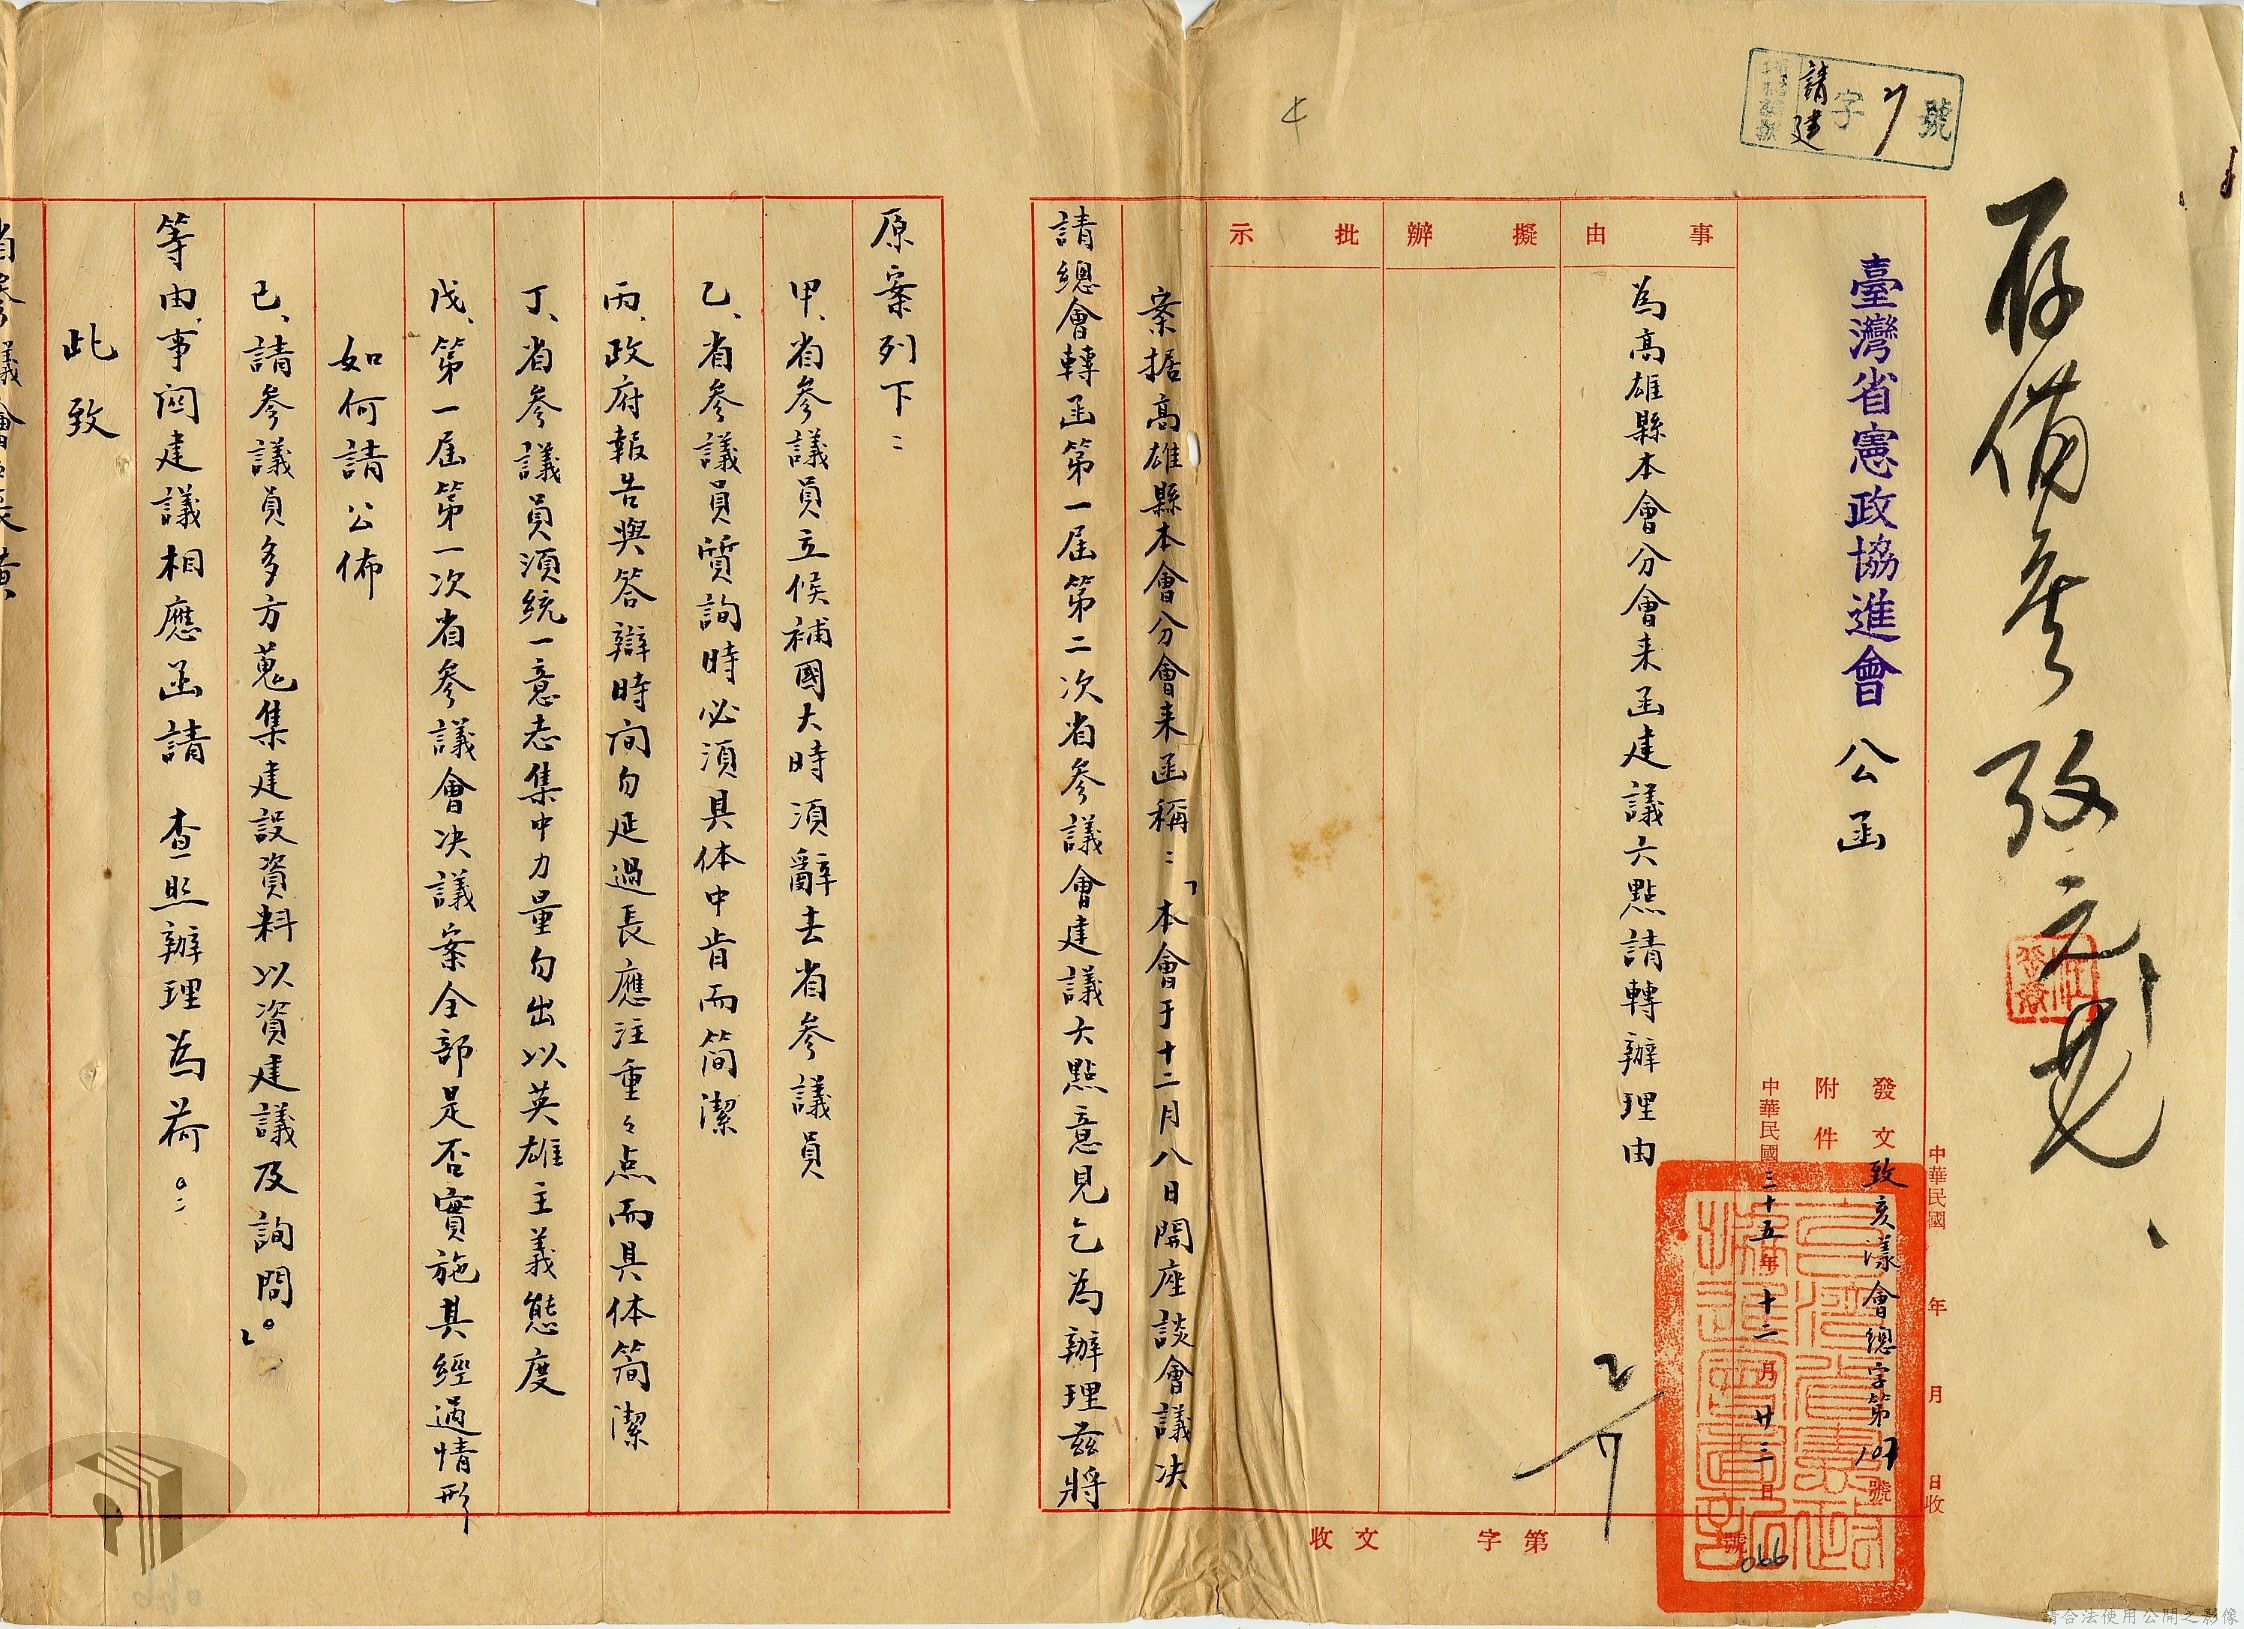 請建字 號
存備參攷
臺灣省憲政協進會 公函
中華民國 年 月 日收
發文 致亥漾會總字第107號
附件
中華民國三十五年十二月廿三日
事由
為高雄縣本會分會来函建議六點請轉辦理由
擬辦
批示
收文 字第 號
066
案据高雄縣本會分會来函稱：「本會于十二月八日開座談會議决
請總會轉函第一屆第二次省參議會建議六點意見乞為辦理兹將
原案列下：
甲、省參議員立候補國大時須辭去省參議員
乙、省參議員質詢時必須具体中肯而簡潔
丙、政府報告與答辯時间勿延過長應注重々点而具体簡潔
丁、省參議員須統一意志集中力量勿出以英雄主義態度
戊、第一屆第一次省參議會决議案全部是否實施其經過情形
如何請公佈
己、請參議員多方蒐集建設資料以資建議及詢問。」
等由，事関建議相應函請 查照辦理為荷。：
此致
省參議會議長黃
請合法使用公開之影像